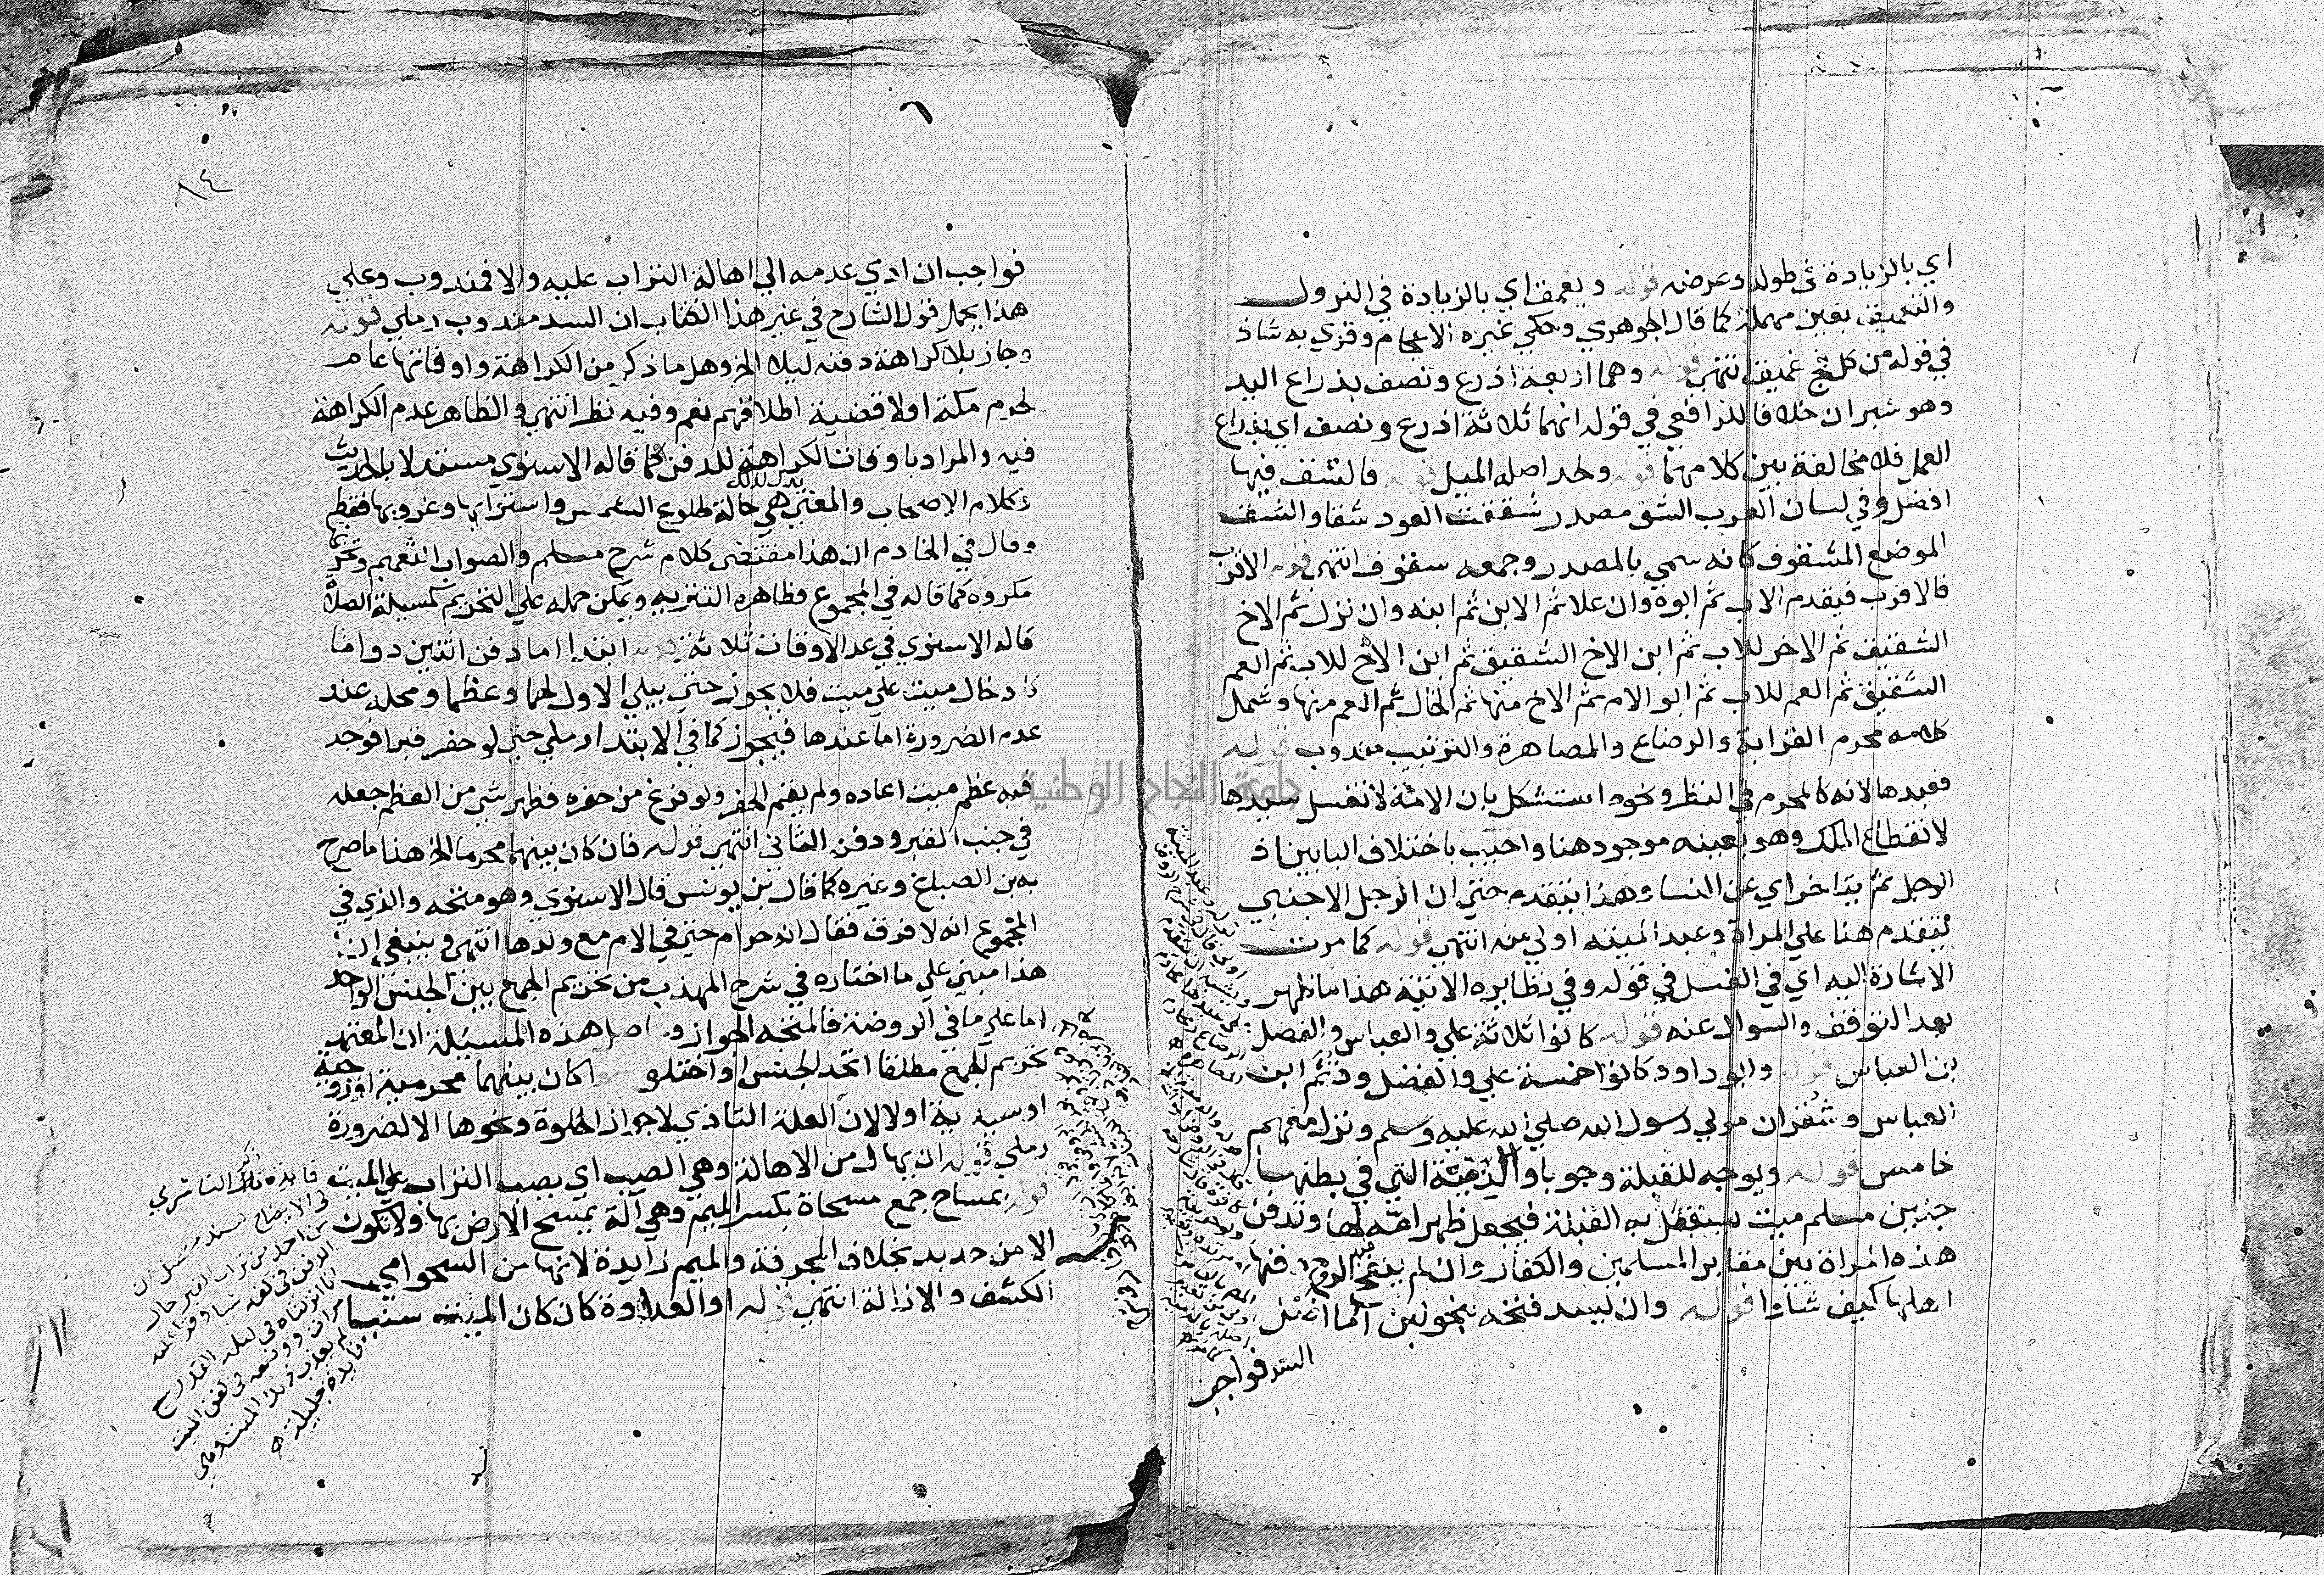 اي بالزيادة في طوله وعرضه قوله ويعمق اي بالزيادة في النزول
والتعميق بعين مهملة كما قال الجوهري وحكي غيره الاعجام وقري به شاذ
في قوله من كل فج غميق انتهي قوله وهما اربعة اذرع ونصف بذراع اليد
وهو شبران خلافا للرافعي في قوله انهما ثلاثة اذرع ونصف اي بذراع
العمل فلا مخالفة بين كلامهما قوله ولحد اصله الميل قوله فالشق فيها
افضل وفي لسان العرب الشق مصدر شققت العود شقا والشق
الموضع المشقوق كانه سمي بالمصدر وجمعه شقوق انتهي قوله الاقرب
فالاقرب فيقدم الاب ثم ابوه وان علا ثم الابن ثم ابنه وان نزل ثم الاخ
الشقيق ثم الاخ للاب ثم ابن الاخ الشقيق ثم ابن الاخ للاب ثم العم
الشقيق ثم العم للاب ثم ابو الام ثم الاخ منها ثم الخال ثم العم منها وشمل
كلامه محرم القرابة والرضاع والمصاهرة والترتيب مندوب قوله
فعبدها لانه كالمحرم في النظر ونحوه استشكل بان الامة لا تغسل سيدها
لانقطاع الملك وهو بعينه موجود هنا واجيب باختلاف البابين اذ
الرجل ثم يتاخر اي عن النسا وهنا يتقدم حتي ان الرجل الاجنبي
يتقدم هنا علي المراة وعبد الميتة اولي منه انتهي قوله كما مرت
الاشارة اليه اي في الغسل في قوله وفي نظايره الاتية هذا ما ظهر
بعد التوقف والسوال عنه قوله كانوا ثلاثة علي والعباس والفضل
بن العباس قوله وابو داود كانوا خمسة علي والفضل وقثم ابن
العباس وشقران مولي رسول الله صلي الله عليه وسلم ونزل معهم
خامس قوله ويوجه للقبلة وجوبا والذمية التي في بطنها
جنين مسلم ميت ليستقبل به القبلة فيجعل ظهر امه لها وتدفن
هذه المراة بين مقابر المسلمين والكفار وان لم ينفخ فيه الروح دفنها
اهلها كيف شاوا قوله وان يسد فتحه بنحو لبن اما اصل
السد فواجب
٨٤
فواجب ان ادي عدمه الي اهالة التراب عليه والا فمندوب وعلي
هذا يحمل قول الشارح في غير هذا الكتاب ان السد مندوب رملي قوله
وجاز بلا كراهة دفنه ليلا الخ وهل ما ذكر من الكراهة واوقاتها عام
لحرم مكة اولا قضية اطلاقهم نعم وفيه نظر انتهي والظاهر عدم الكراهة
فيه والمراد باوقات الكراهة للدفن كما قاله الاسنوي مستدلا بالحديث
وكلام الاصحاب والمعني هي حالة طلوع الشمس واستوايها وغروبها فقط
وقال في الخادم ان هذا مقتضي كلام شرح مسلم والصواب التعميم وتحريها
مكروه كما قاله في المجموع وظاهره التنزيه ويمكن حمله علي التحريم كمسيلة الصلاة
قاله الاسنوي في عد الاوقات ثلاثة قوله ابتدا اما دفن اثنين دواما
كادخال ميت علي ميت فلا يجوز حتي يبلي الاول لحما وعظما ومحله عند
عدم الضرورة اما عندها فيجوز كما في الابتدا رملي حتي لو حفر قبرا فوجد
فيه عظم ميت اعاده ولم يتم الحفر ولو فرغ من حفره فظهر شي من العظم جعله
في جنب القبر ودفن الثاني انتهي قوله فان كان بينهما محرما الخ هنا ما صرح
به بن الصباغ وغيره كما قال بن يونس قال الاسنوي وهو متجه والذي في
المجموع انه لا فرق فقال انه حرام حتي في الام مع ولدها انتهي وينبغي ان
هذا مبني علي ما اختاره في شرح المهذب من تحريم الجمع بين الجنس الواحد
اما علي ما في الروضة فالمتجه الجواز و اصل هذه المسيلة ان المعتمد
تحريم الجمع مطلقا اتحد الجنس او اختلف سوا كان بينهما محرمية او زوجية
او سيدية اولا لان العلة التاذي لا جواز الخلوة ونحوها الا لضرورة
رملي قوله ان يهال من الاهالة وهي الصب اي يصب التراب علي الميت
قوله بمساح جمع مسحاة بكسر الميم وهي آلة يمسح الارض بها ولا تكون
الا من حديد بخلاف المجرفة والميم زايدة لانها من السحو اي
الكشف والازالة انتهي قوله او العداوة كان كان الميت سنيا
فايدة ذكر الناشري
في الايضاح بسند متصل ان
من اخذ من تراب القبر حال
الدفن في كفه شيا وقرا عليه
انا انزلناه في ليلة القدر سبع
مرات ووضعه في كفن الميت
لم يعذب ذلك الميت وهي
فايدة جليلة
جامعة النجاح الوطنية